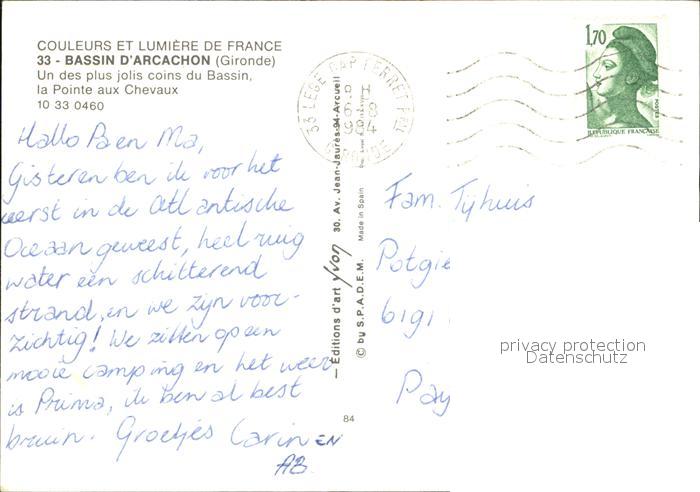 COULEURS ET LUMIÈRE DE FRANCE
33 - BASSIN D'ARCACHON (Gironde)
Un des plus jolis coins du Bassin,
la Pointe aux Chevaux
10 33 0460
Hallo Pa en Ma,
Gisteren ben ik voor het
eerst in de Atlantische
Oceaan geweest, heel ruig
water een schitterend
strand, en we zijn voor-
zichtig! We zitten op een
mooie camping en het weer
is Prima, ik ben al best
bruin. Groetjes Carin EN
AB
84
— Éditions d'art yvon 30, Av. Jean-Jaurès-94-Arcueil
© by S.P.A.D.E.M. Made in Spain
33 LEGE CAP FERRET
GIRONDE
1,70
POSTES
REPUBLIQUE FRANÇAISE
Fam. Tyhuis
Potgie
6191
Pay
privacy protection
Datenschutz